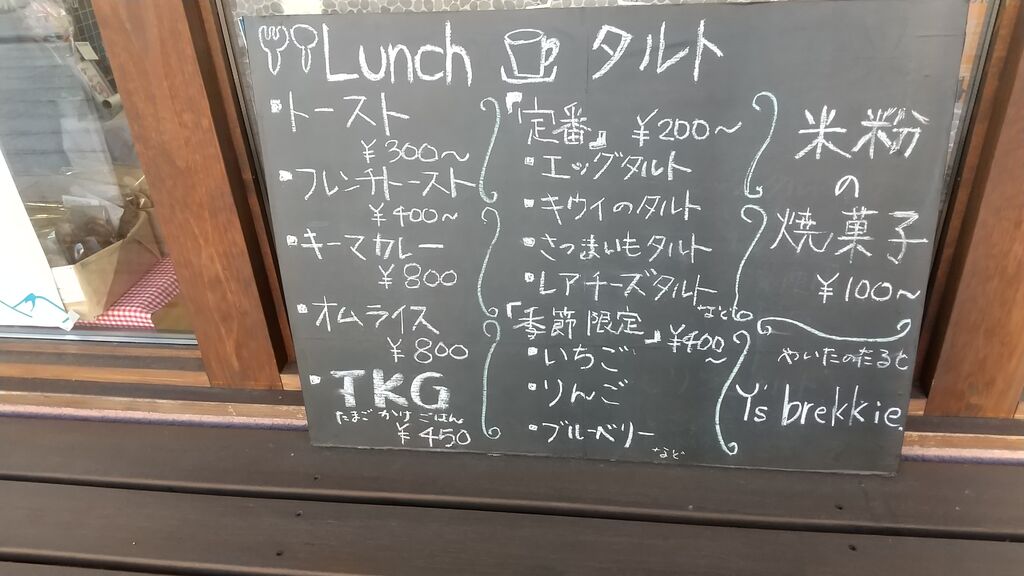 Lunch
・トースト
¥300～
・フレンチトースト
¥400～
・キーマカレー
¥800
・オムライス
¥800
・TKG
たまごかけごはん
¥450
タルト
『定番』 ¥200～
・エッグタルト
・キウイのタルト
・さつまいもタルト
・レアチーズタルト
など
「季節限定」¥400～
・いちご
・りんご
・ブルーベリー
など
米粉
の
焼菓子
¥100～
やいたのたると
Y's brekkie.